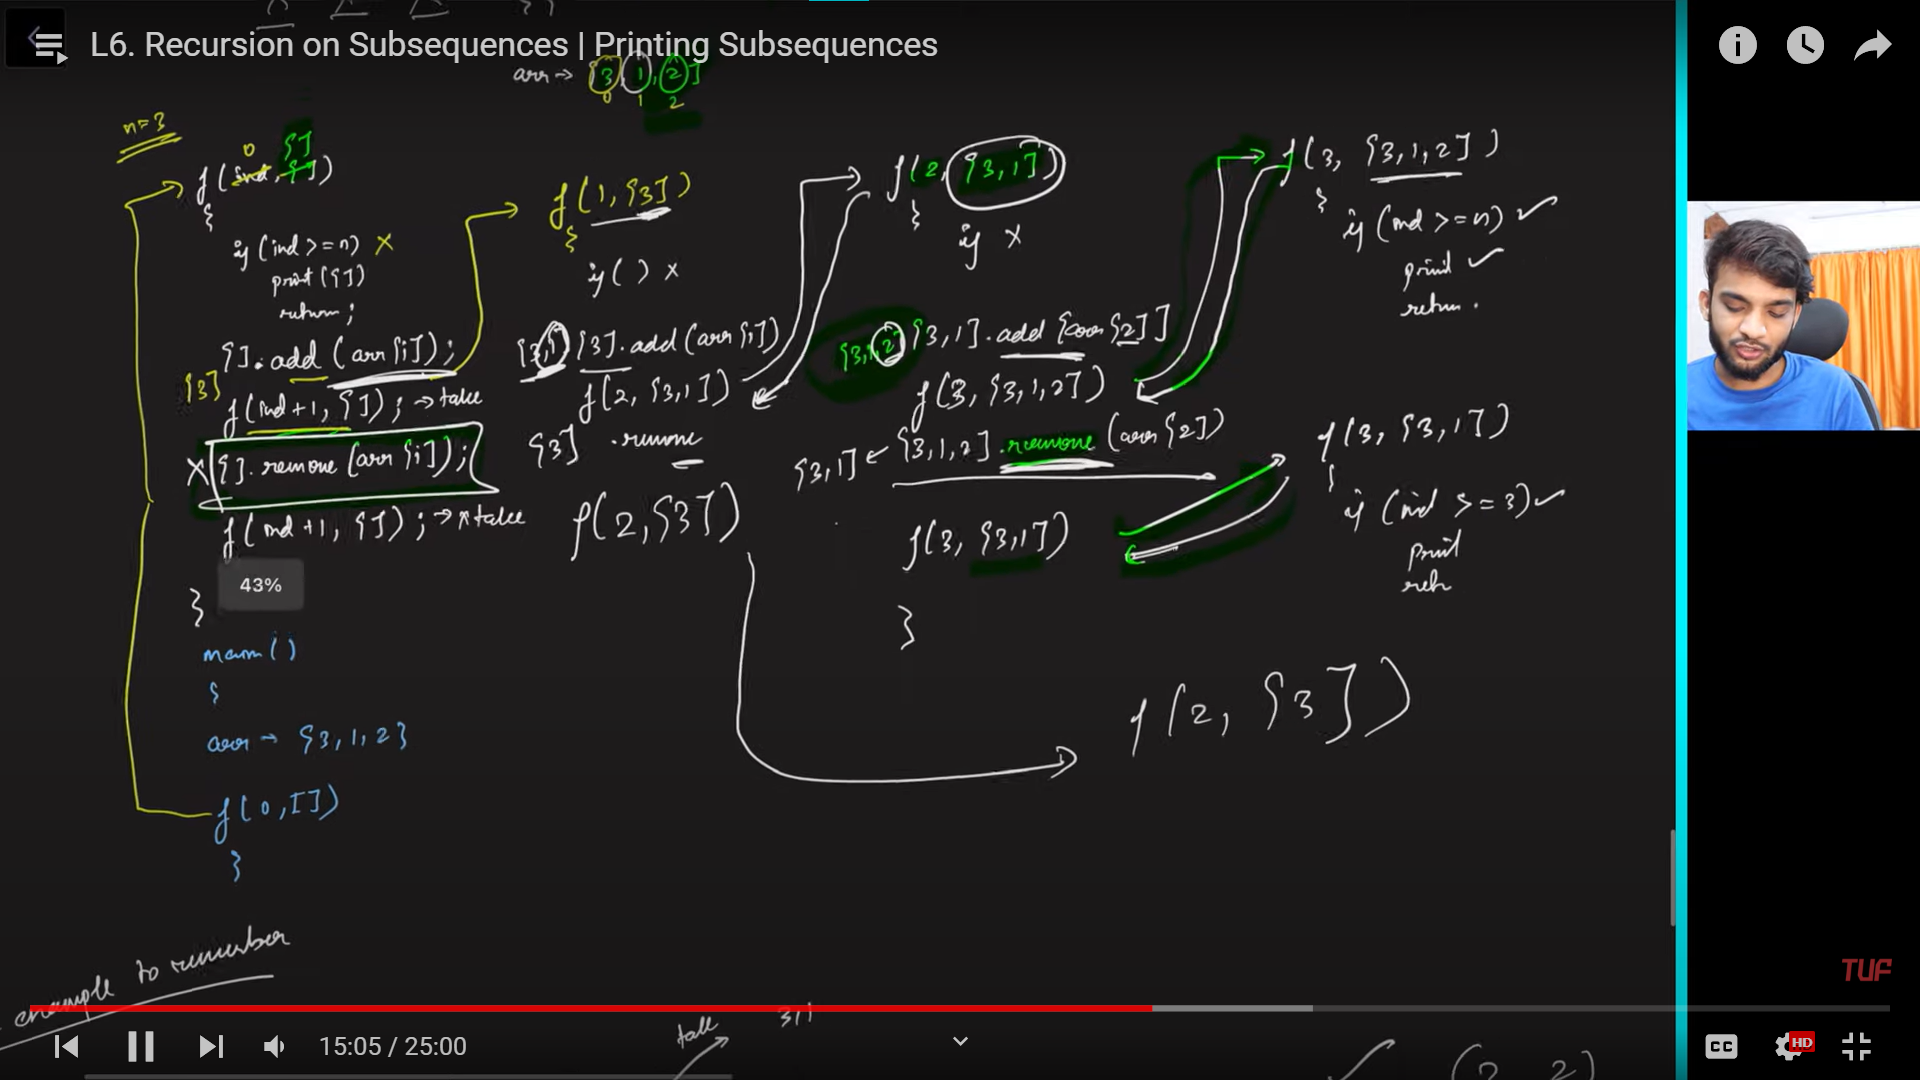 L6. Recursion on Subsequences | Printing Subsequences
arr → [3, 1, 2]
0 1 2
n=3
0 []
f(ind, [])
{
if (ind >= n) x
print([])
return;
[].add(arr[i]);
[3]
f(ind+1, []); → take
x [].remove(arr[i]);
f(ind+1, []); → x take
}
43%
main()
{
arr → {3,1,2}
f(0,[])
}
f(1,[3])
{
if() x
[3,1] [3].add(arr[i])
f(2,[3,1])
[3] .remove
f(2,[3])
f(2,[3,1])
{
if x
[3,1,2] [3,1].add[arr[2]]
f(3,[3,1,2])
[3,1] ← [3,1,2].remove(arr[2])
f(3,[3,1])
}
f(3, [3,1,2])
{
if (ind >= n) ✓
print ✓
return.
f(3,[3,1])
{
if (ind >= 3) ✓
print
f(2,[3])
example to remember
take
3,1
TUF
15:05 / 25:00
CC
HD